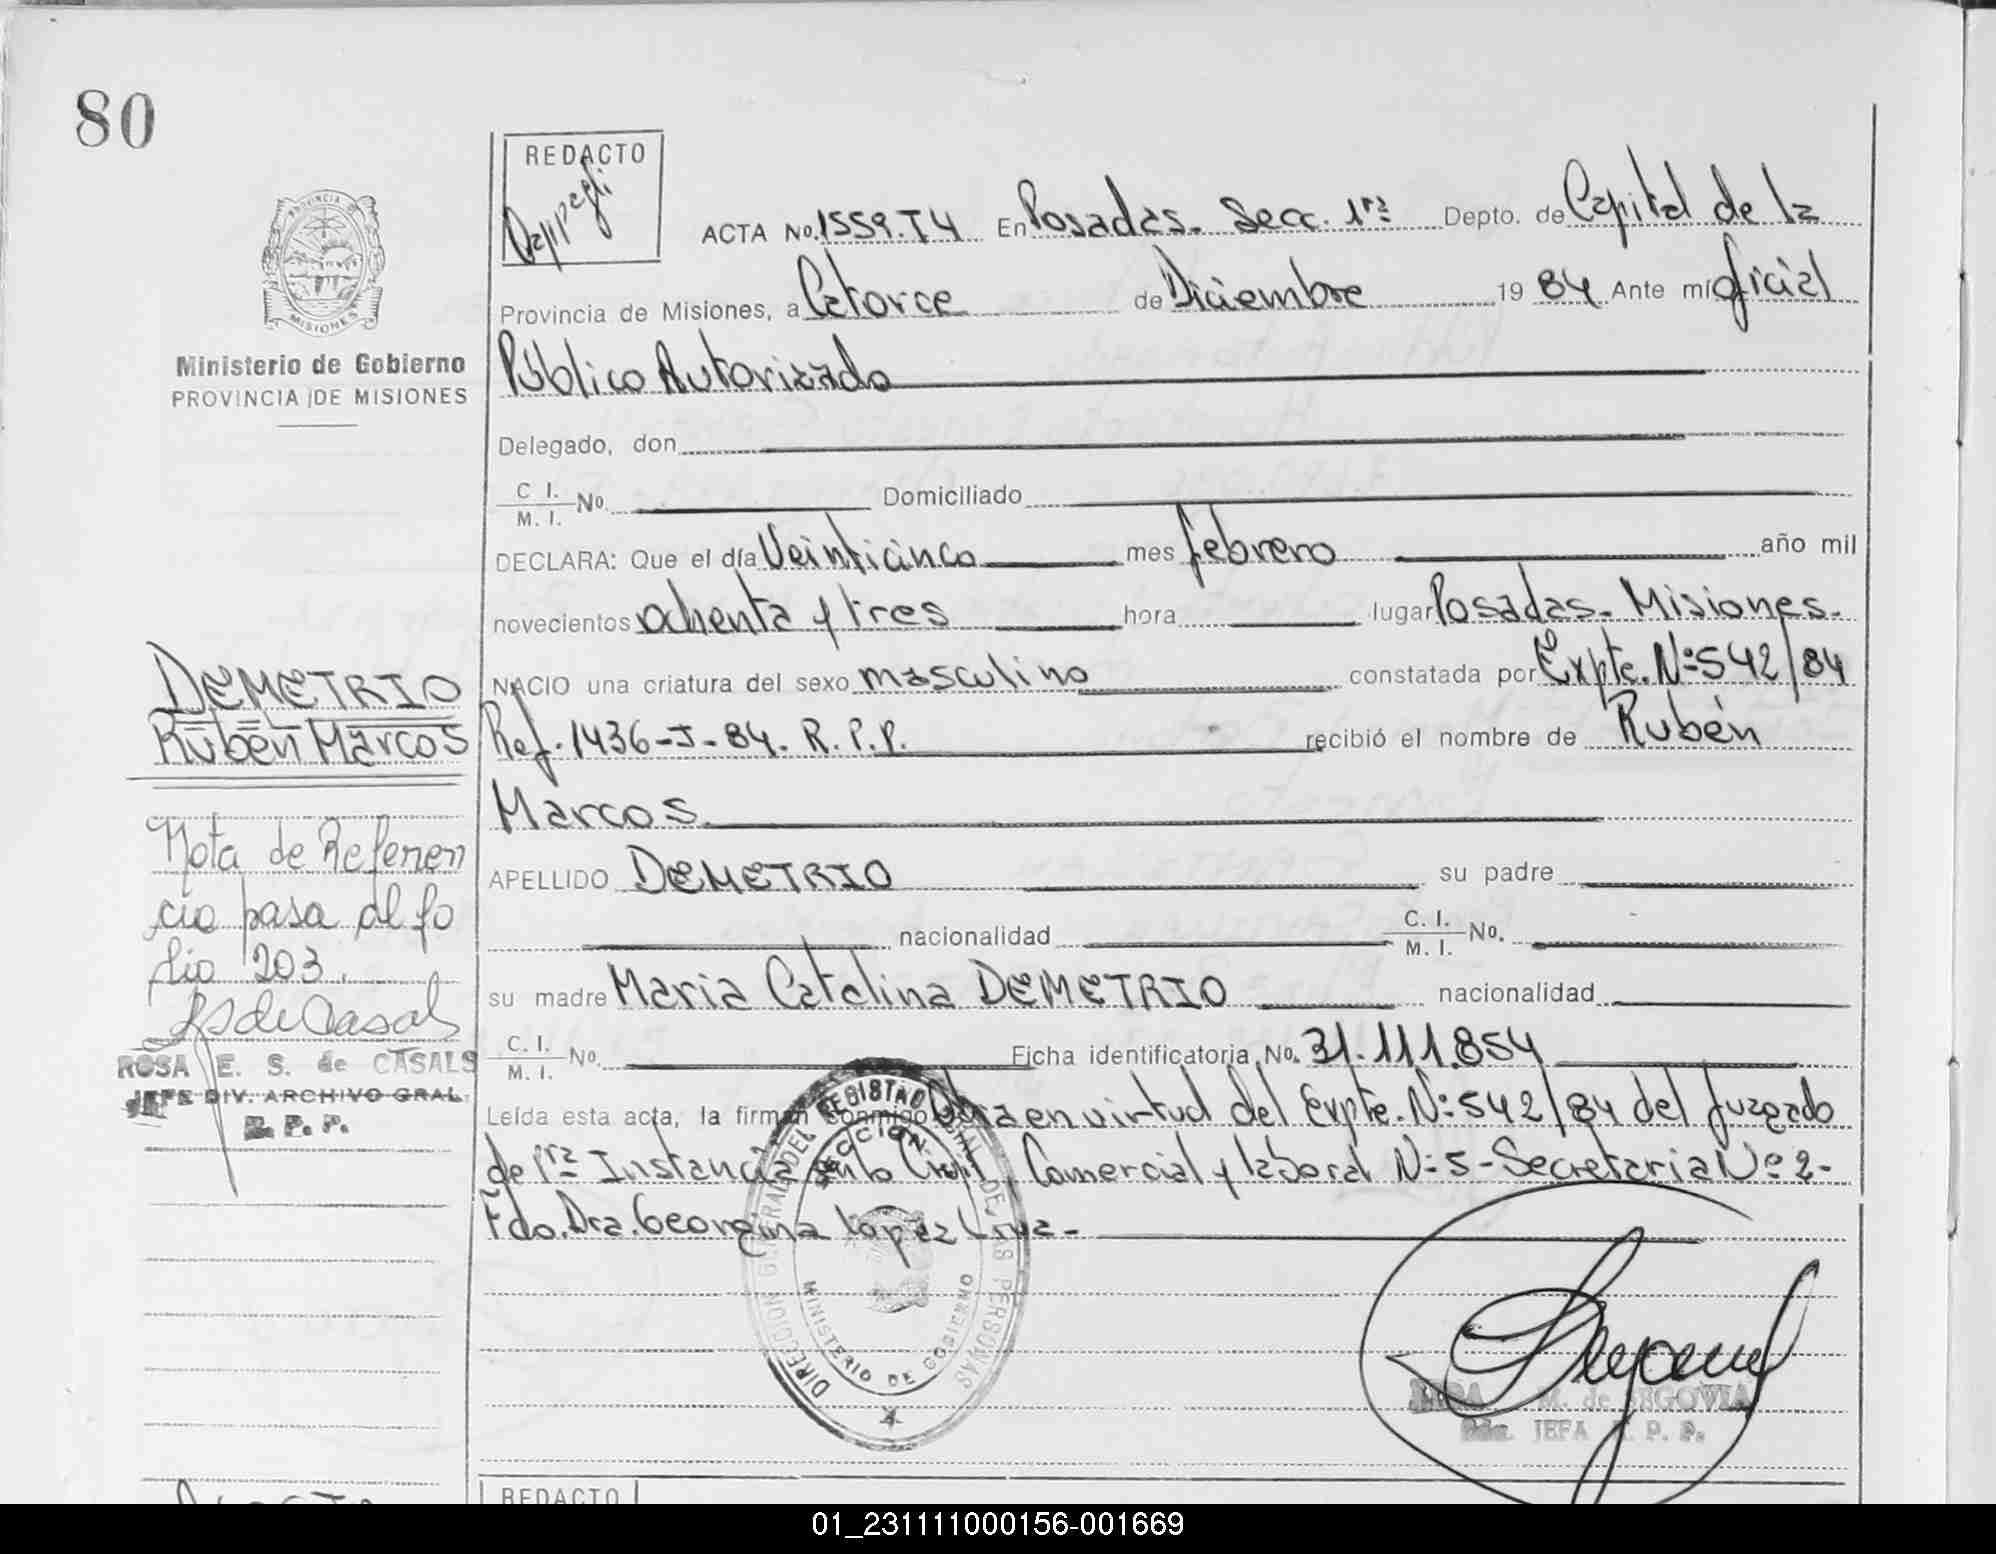 80
REDACTO
ACTA No. 1559.T4 En Posadas. Secc. 1ra Depto. de Capital de la
Provincia de Misiones, a Catorce de Diciembre 19 84 Ante mí Oficial
Público Autorizado
Delegado, don
C. I. M. I. No. Domiciliado
DECLARA: Que el día Veinticinco mes febrero año mil
novecientos ochenta y tres hora lugar Posadas. Misiones.
NACIO una criatura del sexo masculino constatada por Expte. Nº 542/84
Ref. 1436-J-84. R.P.P. recibió el nombre de Rubén
Marcos.
APELLIDO DEMETRIO su padre
nacionalidad C. I. M. I. No.
su madre Maria Catalina DEMETRIO nacionalidad
C. I. M. I. No. Ficha identificatoria No. 31.111.854
Leída esta acta, la firman conmigo en virtud del Expte. Nº 542/84 del Juzgado
de 1ra Instancia en lo Civil, Comercial y laboral Nº 5 - Secretaria Nº 2-
Fdo. Dra. Georgina López
DIRECCION GENERAL DEL REGISTRO DE LAS PERSONAS
SECCION
MINISTERIO DE GOBIERNO
M. de SEGOVIA
JEFA R. P. P.
REDACTO
PROVINCIA DE
MISIONES
Ministerio de Gobierno
PROVINCIA DE MISIONES
DEMETRIO
Rubén Marcos
Nota de Referen
cia pasa al fo
lio 203.
RS de Casals
ROSA E. S. de CASALS
JEFE DIV. ARCHIVO GRAL.
R. P. P.
01_231111000156-001669